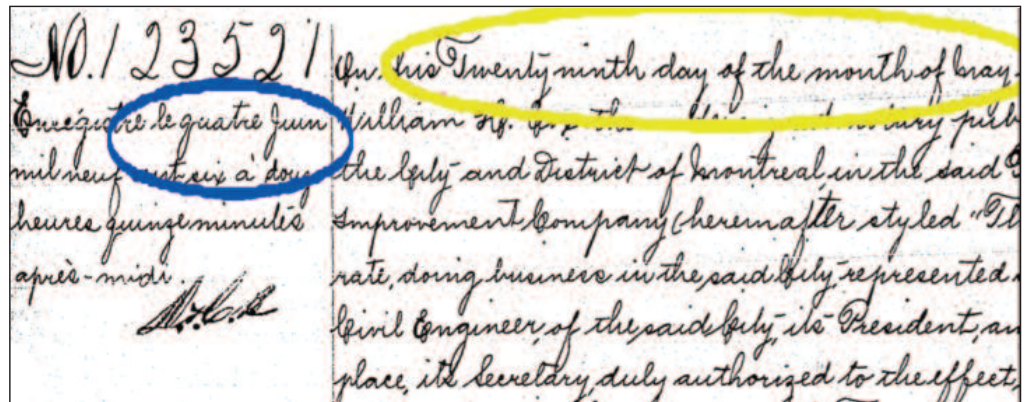 No. 123521
Enregistré le quatre Juin
mil neuf cent six à douze
heures quinze minutes
après-midi.
On this Twenty ninth day of the month of May
William
the City and District of Montreal, in the said
Improvement Company (hereinafter styled "
rate, doing business in the said City, represented
Civil Engineer, of the said City, its President, an
place, its Secretary, duly authorized to the effect,